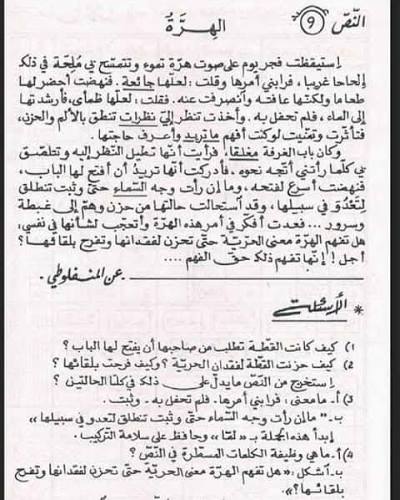 النّصّ ٩
الهِرَّةُ
استيقظت فجر يوم على صوت هرّة تموء وتتمسّح بي مُلحّة في ذلك
إلحاحا غريبا، فرابني أمرها وقلت: لعلّها جائعة. فنهضت أحضر لها
طعاما ولكنّها عافته وانصرفت عنه. فقلت: لعلّها ظمأى، فأرشدتها
إلى الماء، فلم تحفل به. وأخذت تنظر إليّ نظرات تنطق بالألم والحزن،
فتأثّرت وتمنّيت لو كنت أفهم ما تريد وأعرف حاجتها.
وكان باب الغرفة مغلقا، فرأيت أنّها تطيل النّظر إليه وتلتصق
بي كلّما رأتني أتّجه نحوه. فأدركت أنّها تريد أن أفتح لها الباب،
فنهضت أسرع لفتحه، وما إن رأت وجه السّماء حتّى وثبت تنطلق
لتعدو في سبيلها، وقد استحالت حالتها من حزن وهمّ إلى غبطة
وسرور... فعدت أفكّر في أمر هذه الهرّة وأتعجّب لشأنها في نفسي:
هل تفهم الهرّة معنى الحرّيّة حتّى تحزن لفقدانها وتفرح بلقائها؟
أجل! إنّها تفهم ذلك حقّ الفهم ....
عن المنفلوطي.
* الأسئلة
1) كيف كانت القطّة تطلب من صاحبها أن يفتح لها الباب؟
2) كيف حزنت القطّة لفقدان الحرّيّة؟ وكيف فرحت بلقائها؟
استخرج من النّصّ ما يدلّ على ذلك في كلتا الحالتين؟
3) أ. ما معنى: فرابني أمرها. فلم تحفل به. وثبت.
ب- "ما إن رأت وجه السّماء حتّى وثبت تنطلق لتعدو في سبيلها»
ابدأ هذه الجملة بـ «لمّا» وحافظ على سلامة التركيب.
4) أ. ما هي وظيفة الكلمات المسطّرة في النّصّ؟
ب- أشكل: «هل تفهم الهرّة معنى الحرّيّة حتّى تحزن لفقدانها وتفرح
بلقائها؟»